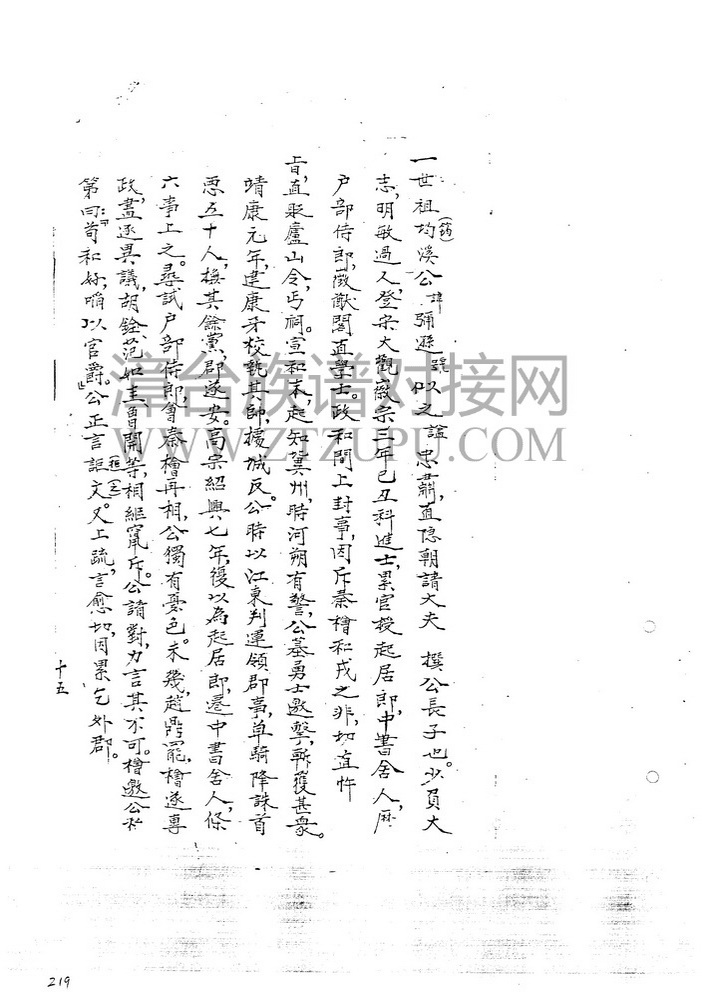 一世祖均(筠)溪公諱彌遜號似之諡忠肅,直隱朝請大夫 撰公長子也。少負大
志,明敏過人,登宋大觀徽宗三年己丑科進士,累官授起居郎,中書舍人,歷
户部侍郎,徽猷閣直學士。政和間上封事,因斥秦檜和戎之非,切直忤
旨,直貶廬山令,丐祠。宣和末,起知冀州,時河朔有警,公募勇士邀擊,斬獲甚衆。
靖康元年,建康牙校執其帥,據城反。公時以江東判運領郡事,单騎降誅首
惡五十人,撫其餘黨,郡遂安。高宗紹興七年,復以為起居郎,遷中書舍人,條
六事上之。尋試户部侍郎,會秦檜再相,公獨有憂色。未幾,趙鼎罷,檜遂專
政,盡逐異議,胡銓、范如圭、曾開等,相繼竄斥。公請對,力言其不可。檜邀公於
第曰:「苟和好,啗以官爵。」公正言詎(拒)文(之)。又上疏,言愈切,因累乞外郡。
十五
219
湾台族谱对接网
WWW.ZTZUPU.COM